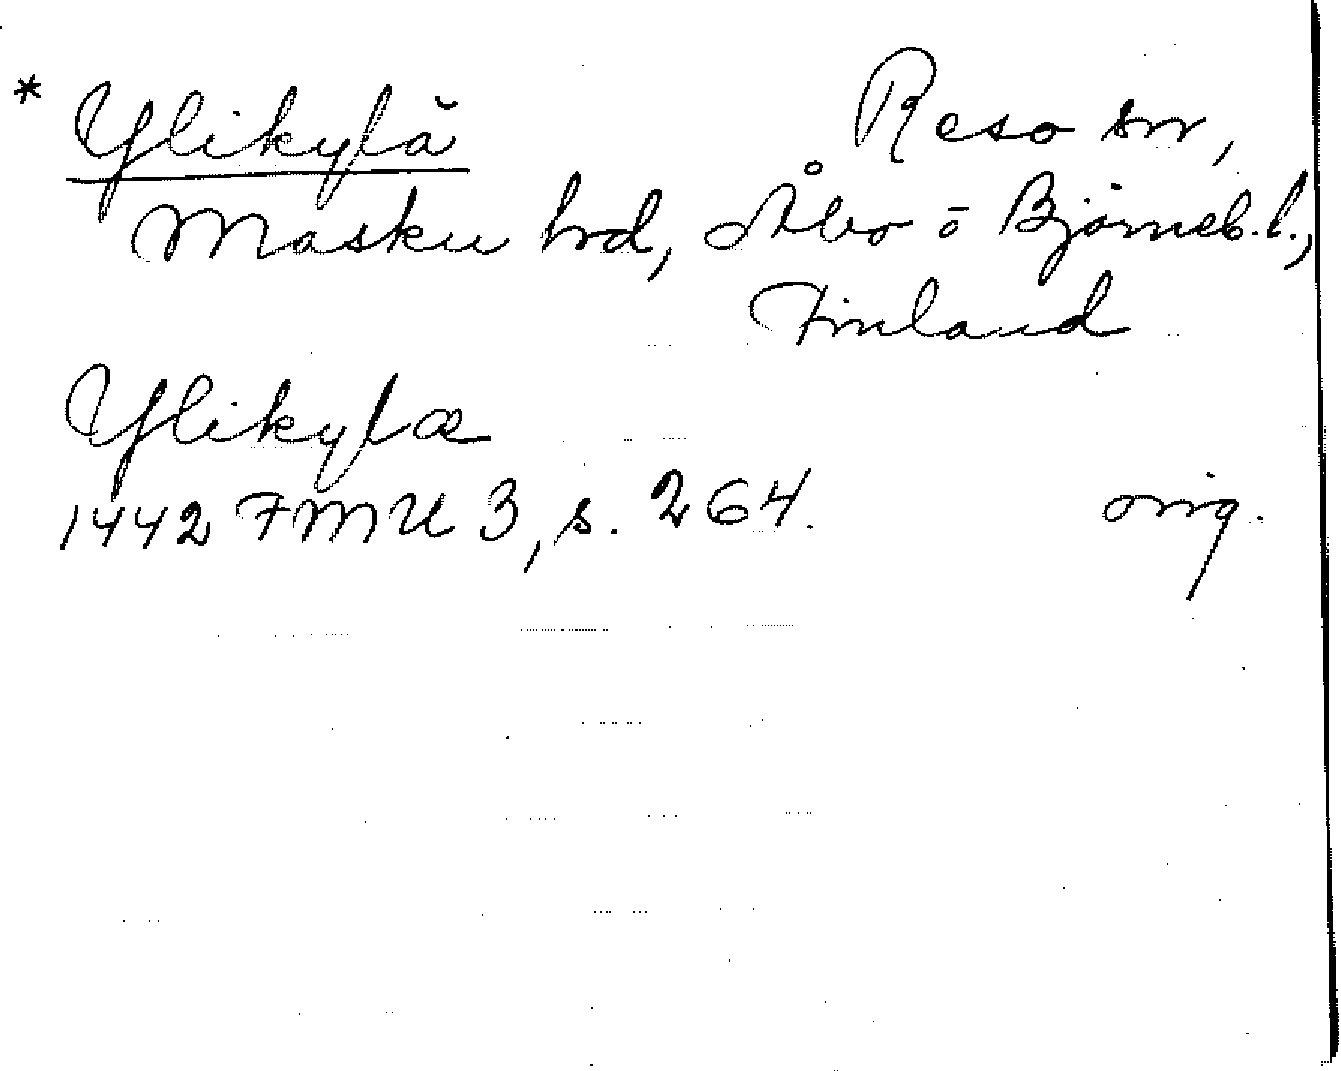 * Ylikylä Reso sn,
Masku hrd, Åbo o Björneb. l.,
Finland
Ylikylæ
1442 FMU 3, s. 264. orig.